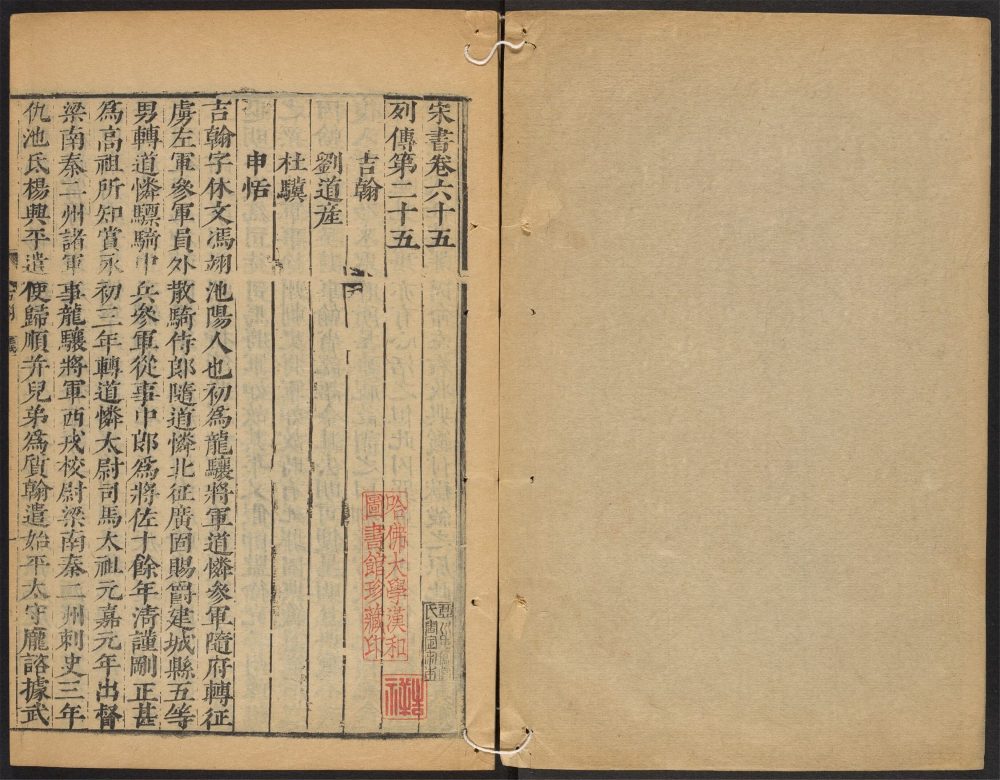 宋書卷六十五
列傳第二十五
吉翰
劉道産
杜驥
申恬
吉翰字休文馮翊池陽人也初爲龍驤將軍道憐參軍隨府轉征
虜左軍參軍員外散騎侍郎隨道憐北征廣固賜爵建城縣五等
男轉道憐驃騎中兵參軍從事中郎爲將佐十餘年淸謹剛正甚
爲高祖所知賞永初三年轉道憐太尉司馬太祖元嘉元年出督
梁南秦二州諸軍事龍驤將軍西戎校尉梁南秦二州刺史三年
仇池氐楊興平遣使歸順并兒弟爲質翰遣始平太守龐諮據武
哈佛大學漢和
圖書館珍藏印